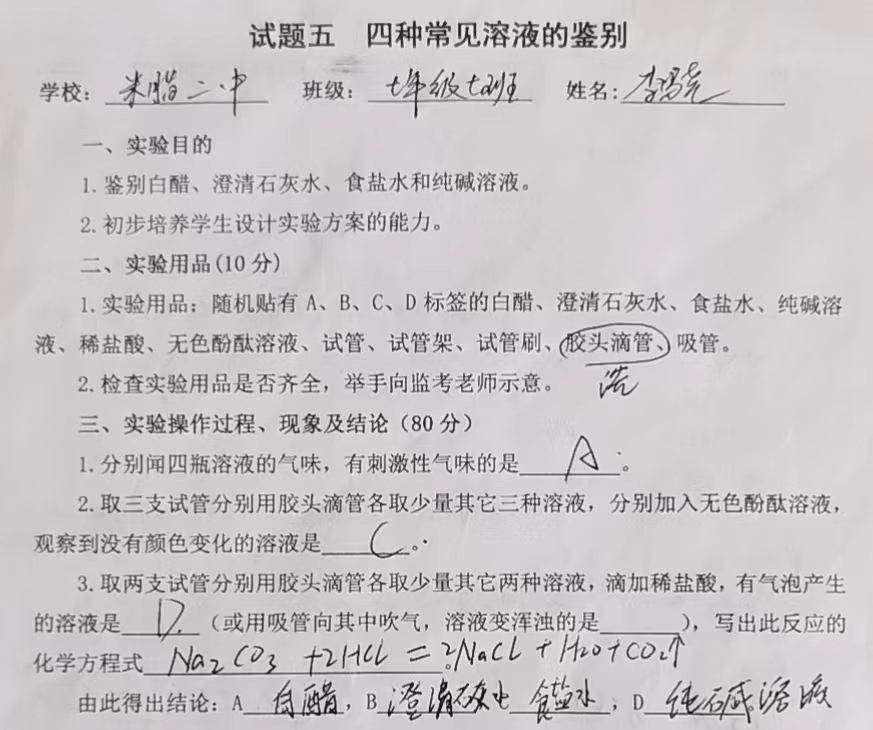 试题五 四种常见溶液的鉴别
学校：米脂二中 班级：七年级七班 姓名：李
一、实验目的
1.鉴别白醋、澄清石灰水、食盐水和纯碱溶液。
2.初步培养学生设计实验方案的能力。
二、实验用品(10分)
1.实验用品：随机贴有A、B、C、D标签的白醋、澄清石灰水、食盐水、纯碱溶
液、稀盐酸、无色酚酞溶液、试管、试管架、试管刷、胶头滴管、吸管。
2.检查实验用品是否齐全，举手向监考老师示意。
三、实验操作过程、现象及结论（80分）
1.分别闻四瓶溶液的气味，有刺激性气味的是 A 。
2.取三支试管分别用胶头滴管各取少量其它三种溶液，分别加入无色酚酞溶液，
观察到没有颜色变化的溶液是 C 。
3.取两支试管分别用胶头滴管各取少量其它两种溶液，滴加稀盐酸，有气泡产生
的溶液是 D. （或用吸管向其中吹气，溶液变浑浊的是______），写出此反应的
化学方程式 Na₂CO₃+2HCl=2NaCl+H₂O+CO₂↑
由此得出结论：A 白醋，B 澄清石灰水 食盐水，D 纯碱溶液